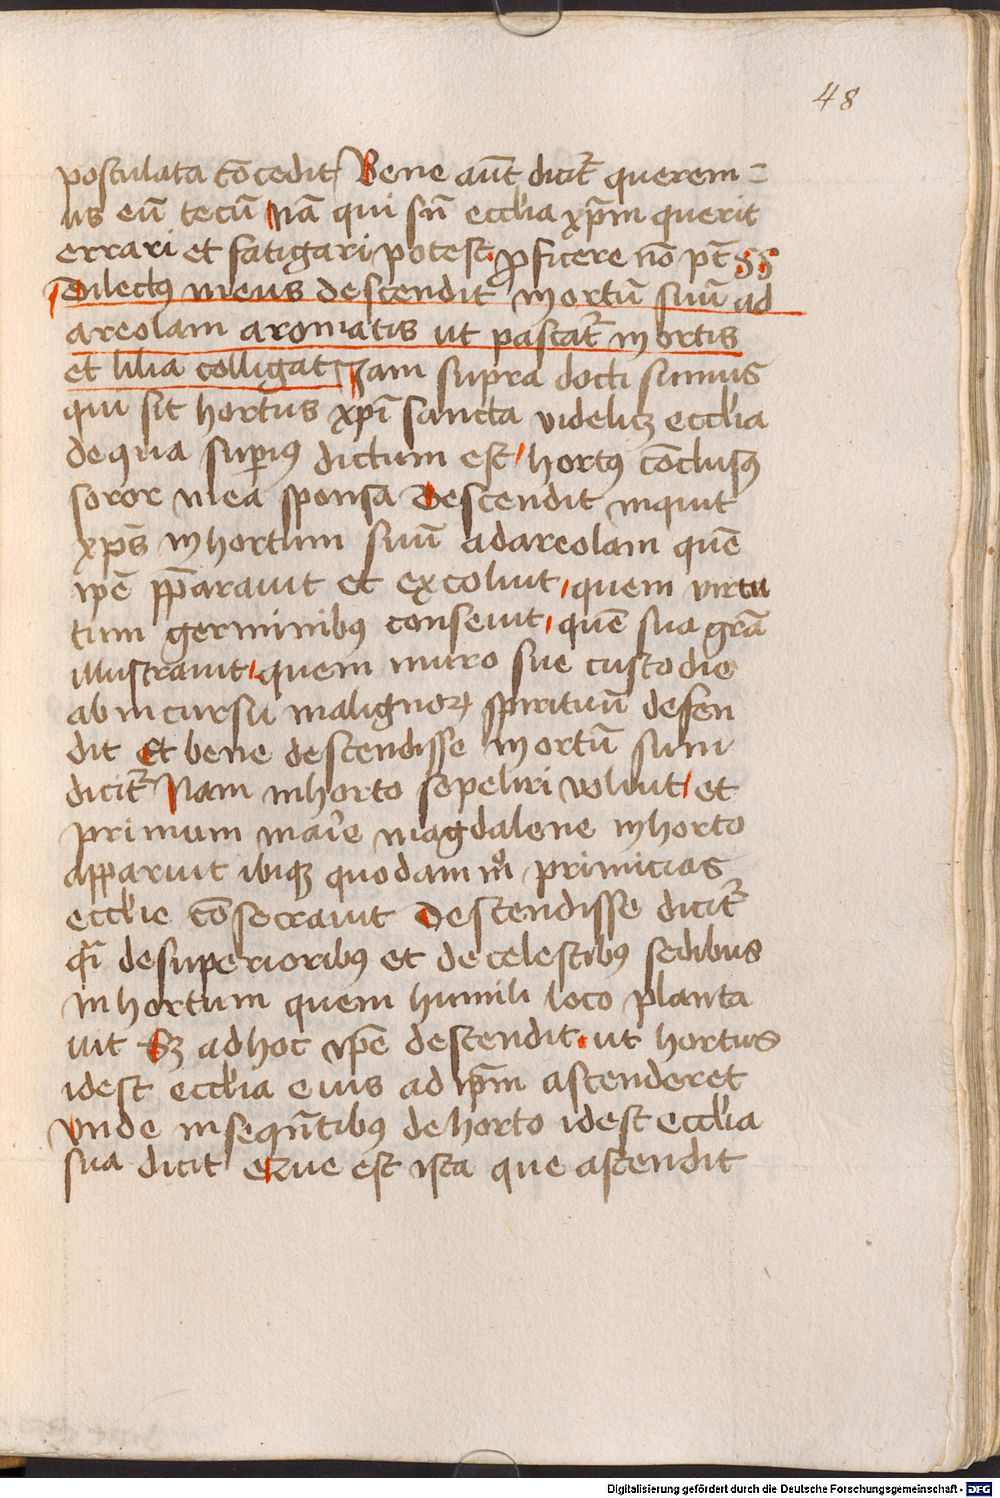 48
postulata cōcedit Bene aūt dicit᷑ querem=
us eū tecū Nā qui sn̄ eccl'ia xp̄m querit
errari et fatigari potest ꝓficere nō pt̄ §§
Dilectꝰ meus descendit in ortū suū ad
areolam aromatis ut pascat᷑ in ortis
et lilia colligat Jam supra docti sumus
qui sit hortus xp̄i sancta videlicꝫ eccl'ia
de qua suꝑiꝰ dictum est hortꝰ cōclusꝰ
soror mea sponsa Descendit inquit
xp̄s in hortum suū ad areolam quē
ip̄e p̄parauit et excoluit quem virtu
tum germinibꝰ conseuit quē sua gr̄a
illustrauit quem muro sue custodie
ab incursu malignoꝝ spirituū defen
dit Et bene descendisse in ortū suū
dicit᷑ Nam in horto sepeliri voluit et
primum marie magdalene in horto
apparuit ibiqꝫ quodam mͦ primicias
eccl'ie cōsecrauit Descendisse dicit᷑
qͥ de superioribꝰ et de celestibꝰ sedibus
in hortum quem humili loco planta
uit Sꝫ ad hoc ip̄e descendit ut hortus
id est eccl'ia eius ad ip̄m ascenderet
vnde in sequn̄tibꝰ de horto id est eccl'ia
sua dicit Que est ista que ascendit
Digitalisierung gefördert durch die Deutsche Forschungsgemeinschaft - DFG